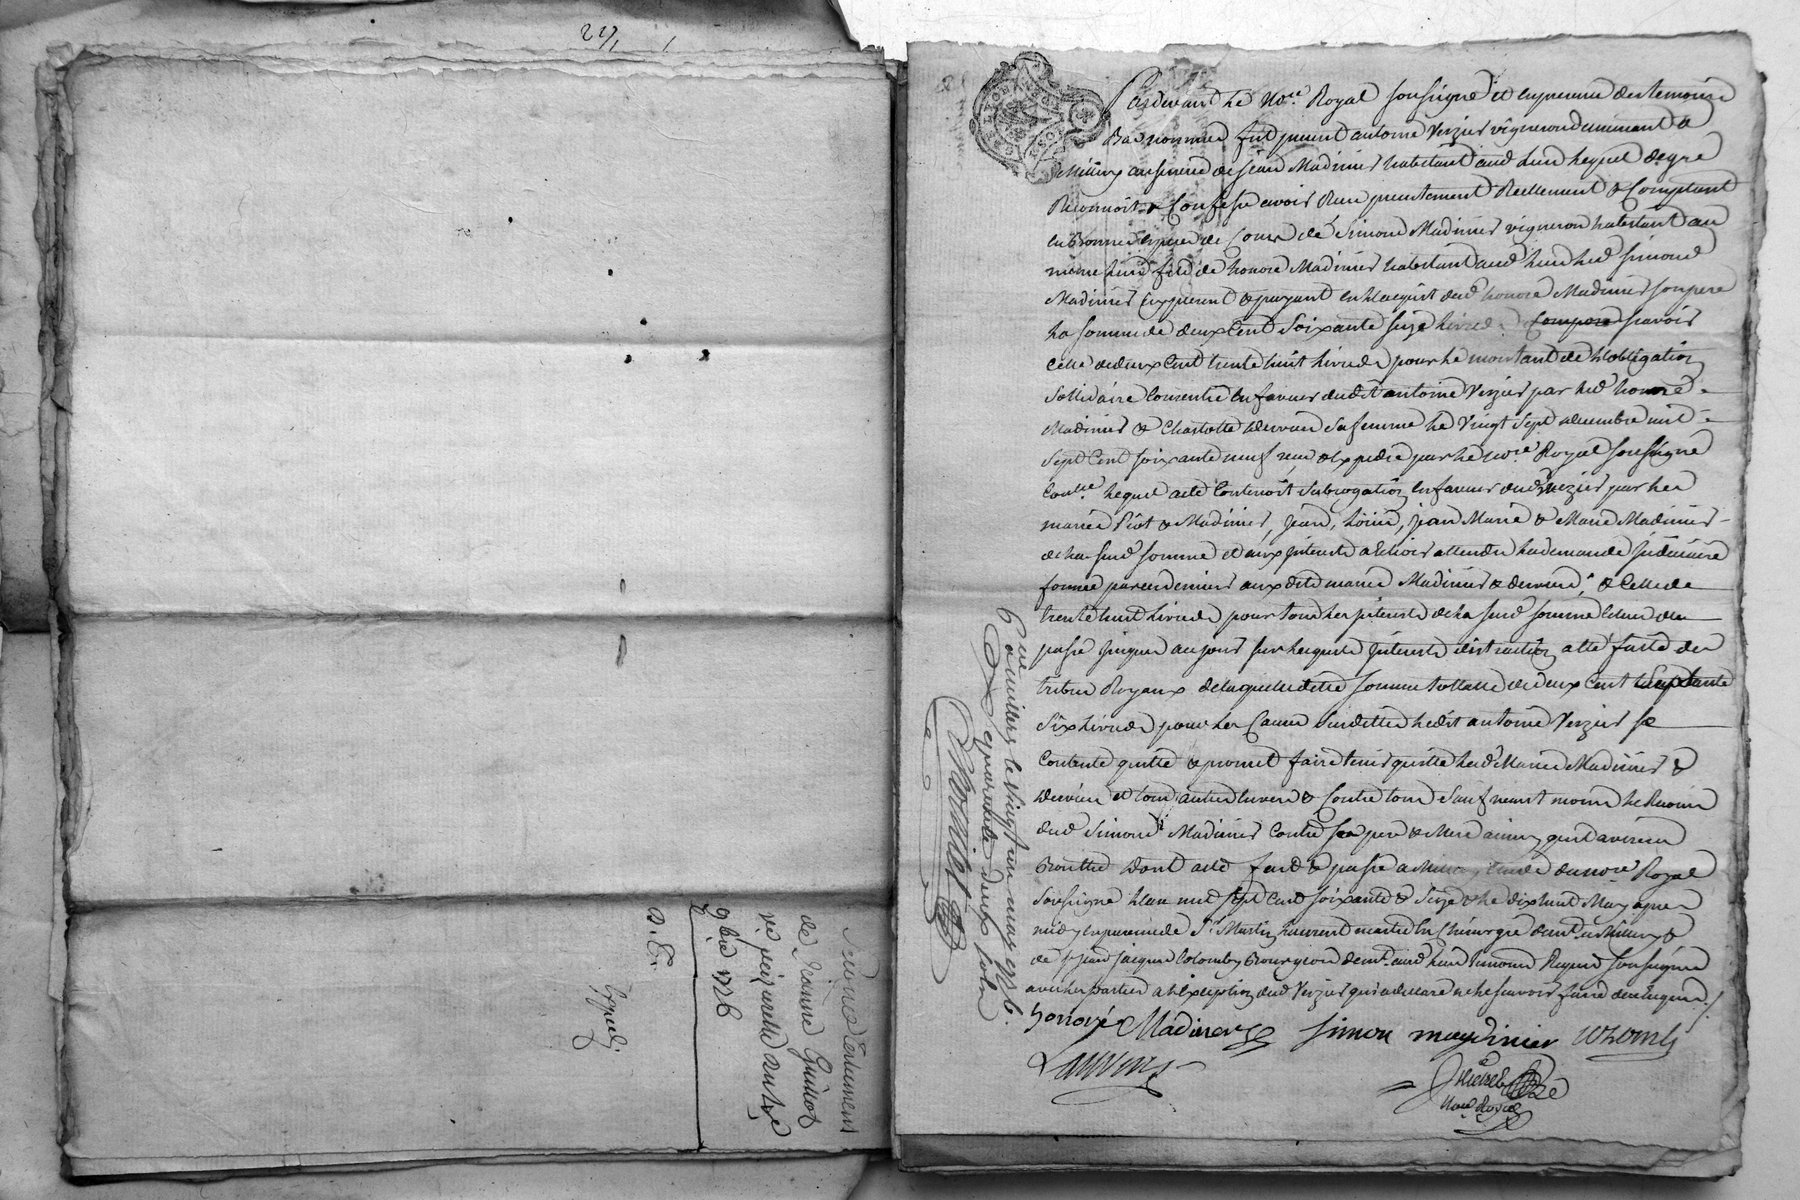 Second testament
de Jeanne Guinot
9bre 1726
Expedié
Pardevant le No.re Royal soussigné et en presence des temoins
Bas nommés fut present antoine Verzier vigneron demeurant a
Millery au service de Jean Madinier habitant aud. lieu lequel de gré
Reconnoit & Confesse avoir Reçu presentement Reellement & Comptant
en Bonnes especes de Cours de Simond Madinier vigneron habitant au
meme lieu fils de honoré Madinier habitant aud. lieu led. Simond
Madinier icy present & payant en l'acquit dud. honoré Madinier son pere
la somme de deux Cent Soixante seize livres sçavoir
celle de deux Cent trente huit livres pour le montant de l'obligation
Sollidaire Consentie en faveur dudit antoine Verzier par led. honoré
Madinier & Charlotte dervieu sa femme le Vingt Sept decembre mil
Sept Cent soixante neuf reçu & expedié par le no.re Royal soussigné
lequel acte Contenoit Subrogation en faveur dud. Verzier par les
mariés Piot & Madinier, Jean, Jean Marie & Marie Madinier
de la susd. somme et aux interets a Echoir attendu la demande judiciaire
formée par ces derniers auxdits mariés Madinier & dervieu, & Celle de
trente huit livres pour tous les interets de la susd. somme Courus du
passé jusques au jour sur lesquels interets distraction a été faite des
tributs Royaux de laquelle dette somme totalle de deux Cent Septante
Six livres pour les Causes Susdittes ledit antoine Verzier se
Contente quitte & promet faire tenir quitte lesd. Mariés Madinier &
dervieu et tous autres envers & Contre tous Sauf neant moins le Recours
dud. Simond Madinier Contre ses pere & Mere ainsy qu'il avisera
dont acte fait & passé a Millery etude du no.re Royal
Soussigné l'an mil sept Cent soixante & Seize & le dix huit May apres
midy en presence de S.r Martin Laurent maitre en Chirurgie dem.t a Millery &
de S.r jean jacques Colomby Bourgeois dem.t aud. lieu temoins Requis soussignés
avec les parties a l'Exception dud. Verzier qui a declaré ne le sçavoir faire de ce Requis
honoré Madinier Simon maydinier Colomby
Laurent
No.re Royal
Controllé a Millery le Vingt un may 1776.
Reçu quarante deux sols